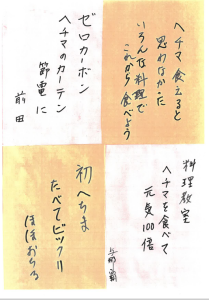 ヘチマ食えると
思わなかった
いろんな料理で
これから食べよう
ゼロカーボン
ヘチマのカーテン
節電に
前田
料理教室
ヘチマを食べて
元気100倍
初へちま
たべてビックリ
ほほおちる